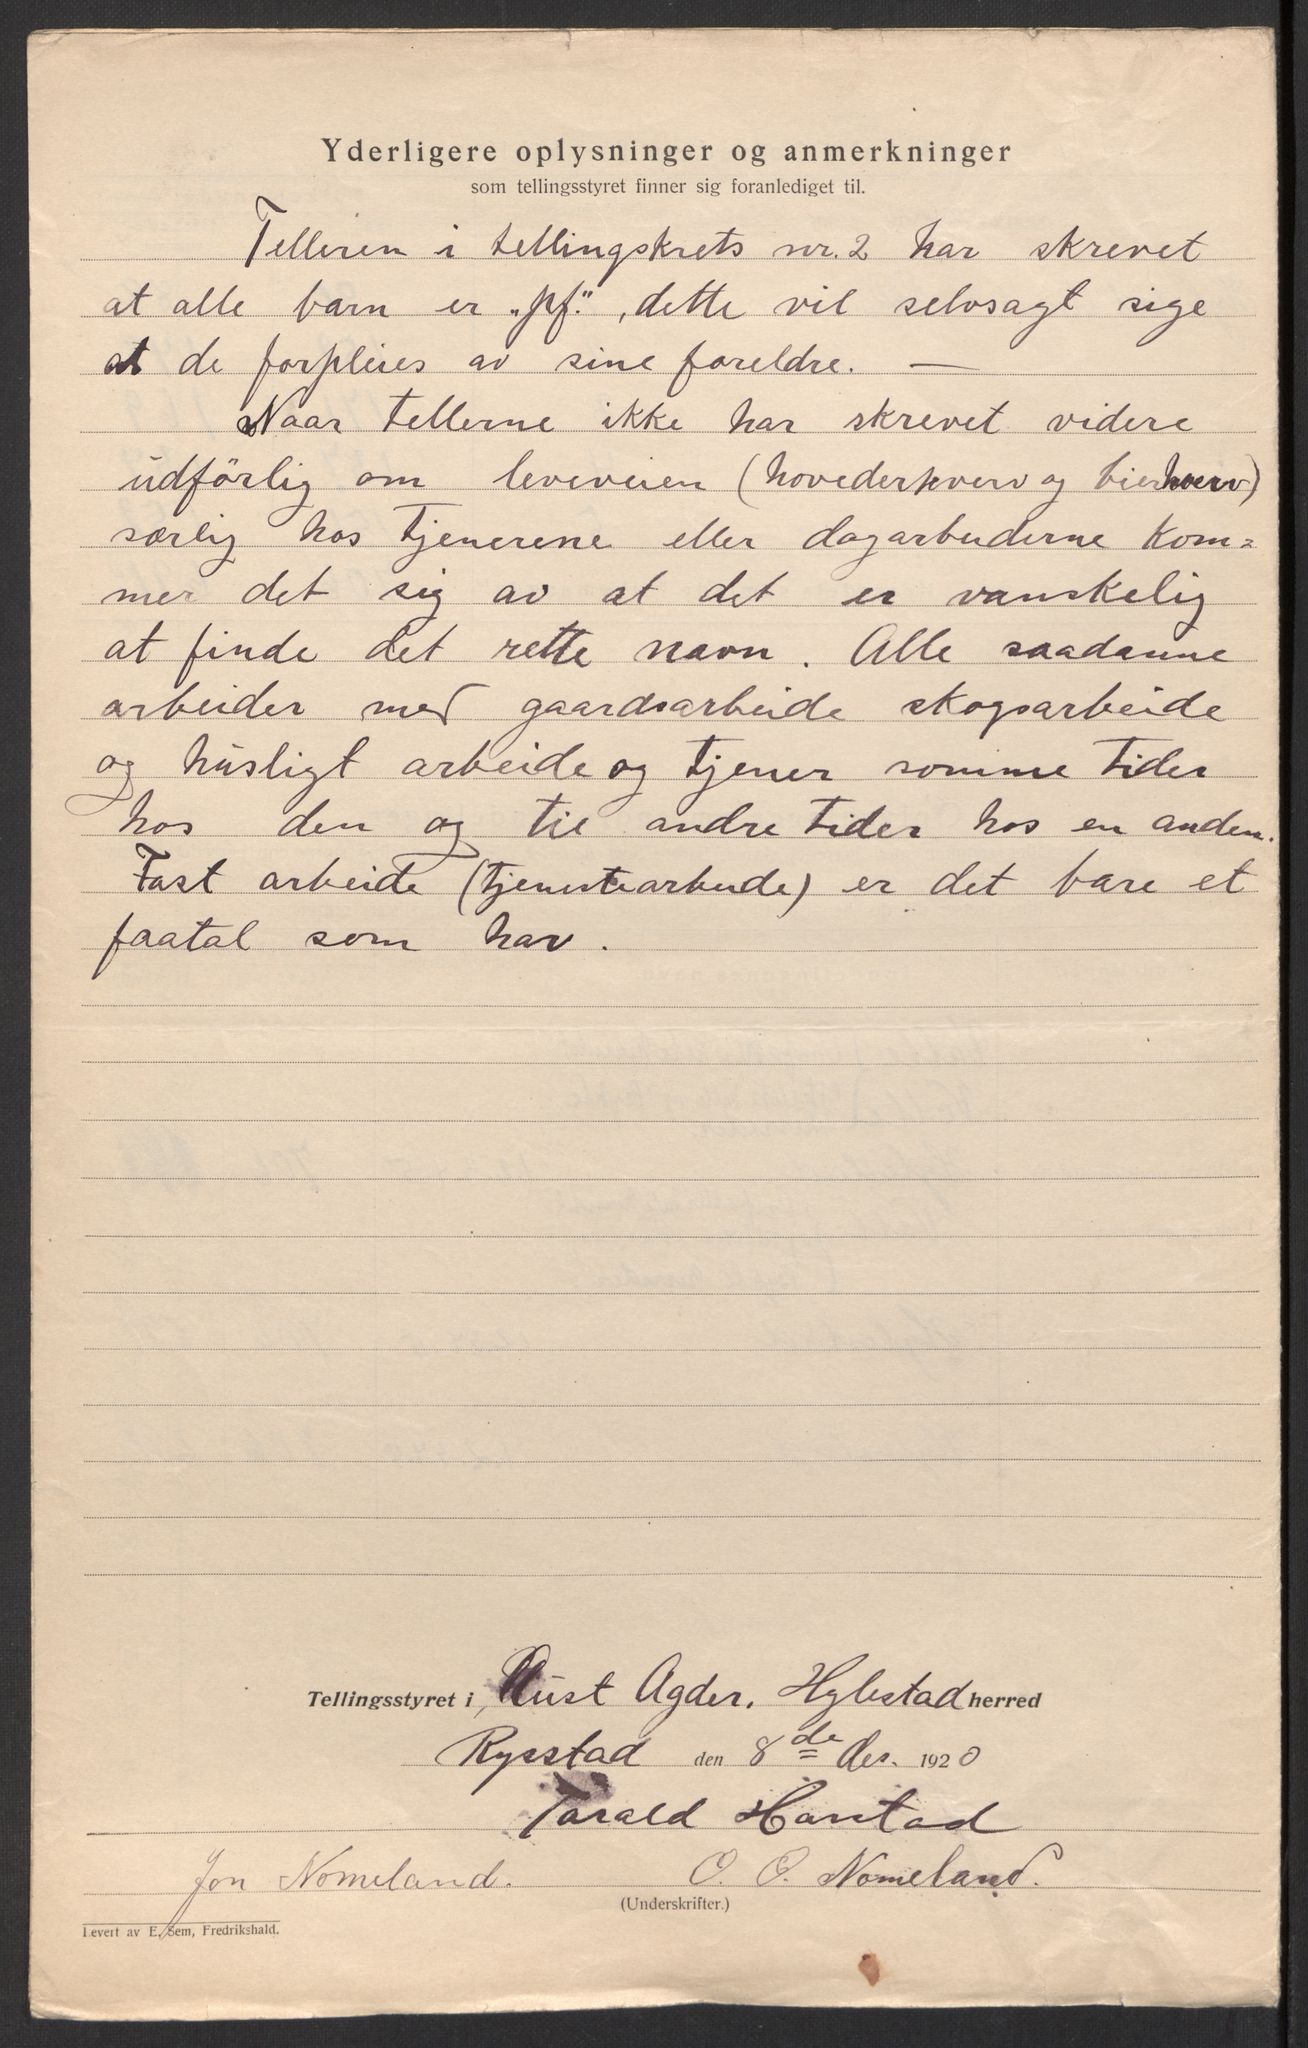 Yderligere oplysninger og anmerkninger
som tellingsstyret finner sig foranlediget til.
Telleren i tellingskrets nr. 2 har skrevet
at alle barn er „pf.", dette vil selvsagt sige
at de forpleies av sine foreldre. —
Naar tellerne ikke har skrevet videre
udførlig om leveveien (hovederhverv og bierhverv)
særlig hos tjenerene eller dagarbeiderne kom=
mer det sig av at det er vanskelig
at finde det rette navn. Alle saadanne
arbeider med gaardsarbeide skogsarbeide
og husligt arbeide og tjener somme tider
hos den og til andre tider hos en anden.
Fast arbeide (tjenestearbeide) er det bare et
faatal som har.
Tellingsstyret i Aust Agder, Hylestad herred
Rysstad den 8de Des. 1920
Tarald Harstad
Jon Nomeland. O. O. Nomeland.
(Underskrifter.)
Levert av E. Sem, Fredrikshald.